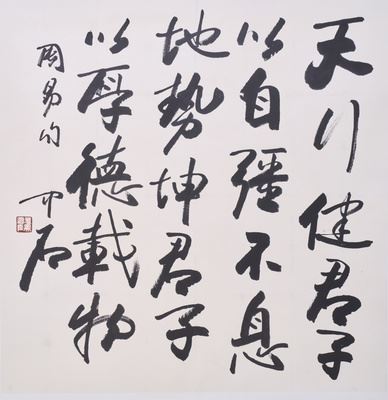 天行健君子
以自彊不息
地勢坤君子
以厚德載物
周易句
中石